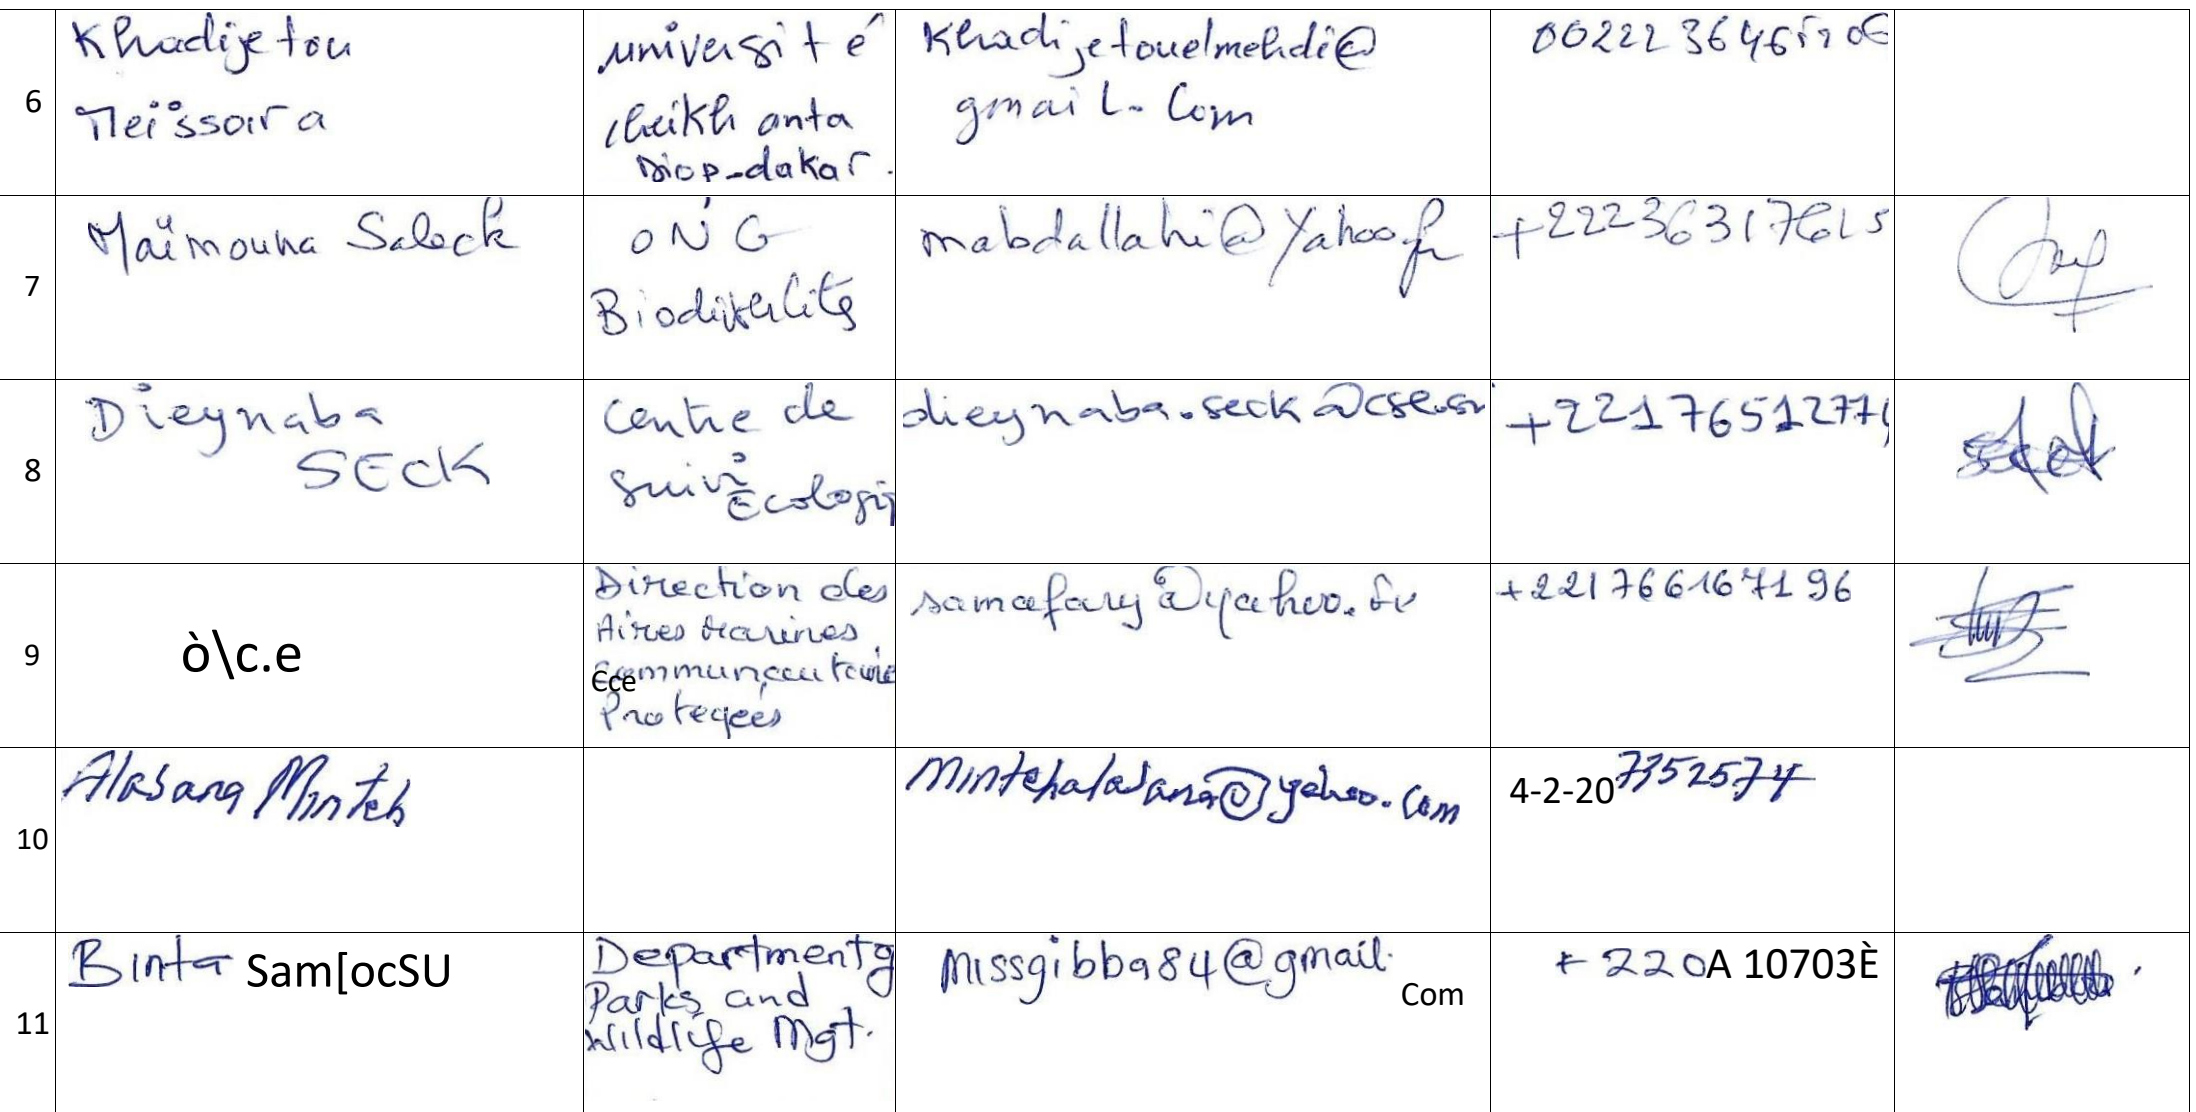 6
Khadijetou
Meissara
université
cheikh anta
Diop-dakar.
Khadijetouelmehdi@
gmail.com
7
Maïmouna Saleck
ONG
Biodiversités
mabdallahi@yahoo.fr
+22236317615
8
Dieynaba
SECK
Centre de
suivi
Ecologiq
dieynaba.seck@cse.sn
+22176512774
9
ò\c.e
Direction des
Aires Marines
Communautaire
Єce
Protegées
samafary@yahoo.fr
+221766167196
10
Alasana Minteh
Mintehalasana@yahoo.com
4-2-20 7352574
11
Binta Sam[ocSU
Department of
Parks and
Wildlife Mgt.
Missgibba84@gmail.
Com
+220A 10703È